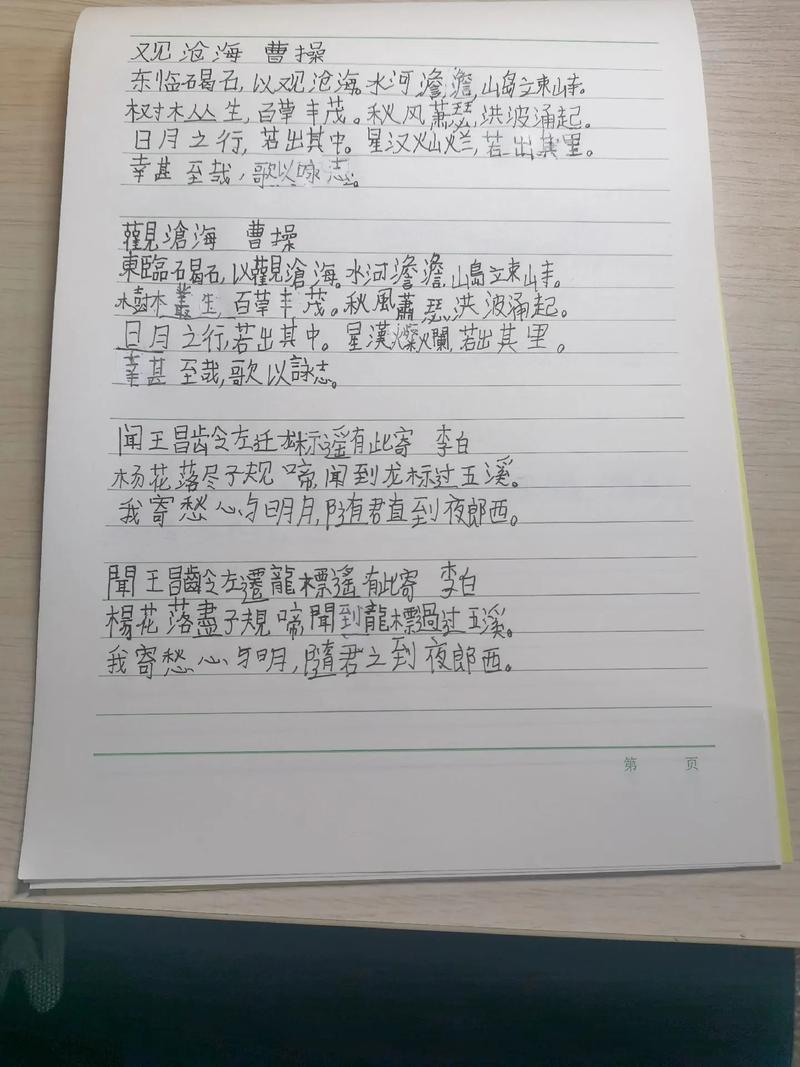 观沧海 曹操
东临碣石,以观沧海。水河澹澹,山岛立東峙。
树木丛生,百草丰茂。秋风萧瑟,洪波涌起。
日月之行,若出其中。星汉灿烂,若出其里。
幸甚至哉,歌以咏志。
觀滄海 曹操
東臨碣石,以觀滄海。水河澹澹,山島立東峙。
樹木叢生,百草丰茂。秋風蕭瑟,洪波涌起。
日月之行,若出其中。星漢燦爛,若出其里。
幸甚至哉,歌以詠志。
闻王昌龄左迁龙标遥有此寄 李白
杨花落尽子规啼,闻到龙标过五溪。
我寄愁心与明月,随君直到夜郎西。
聞王昌齡左遷龍標遙有此寄 李白
楊花落盡子規啼,聞到龍標過过五溪。
我寄愁心与明月,隨君之到夜郎西。
第 页